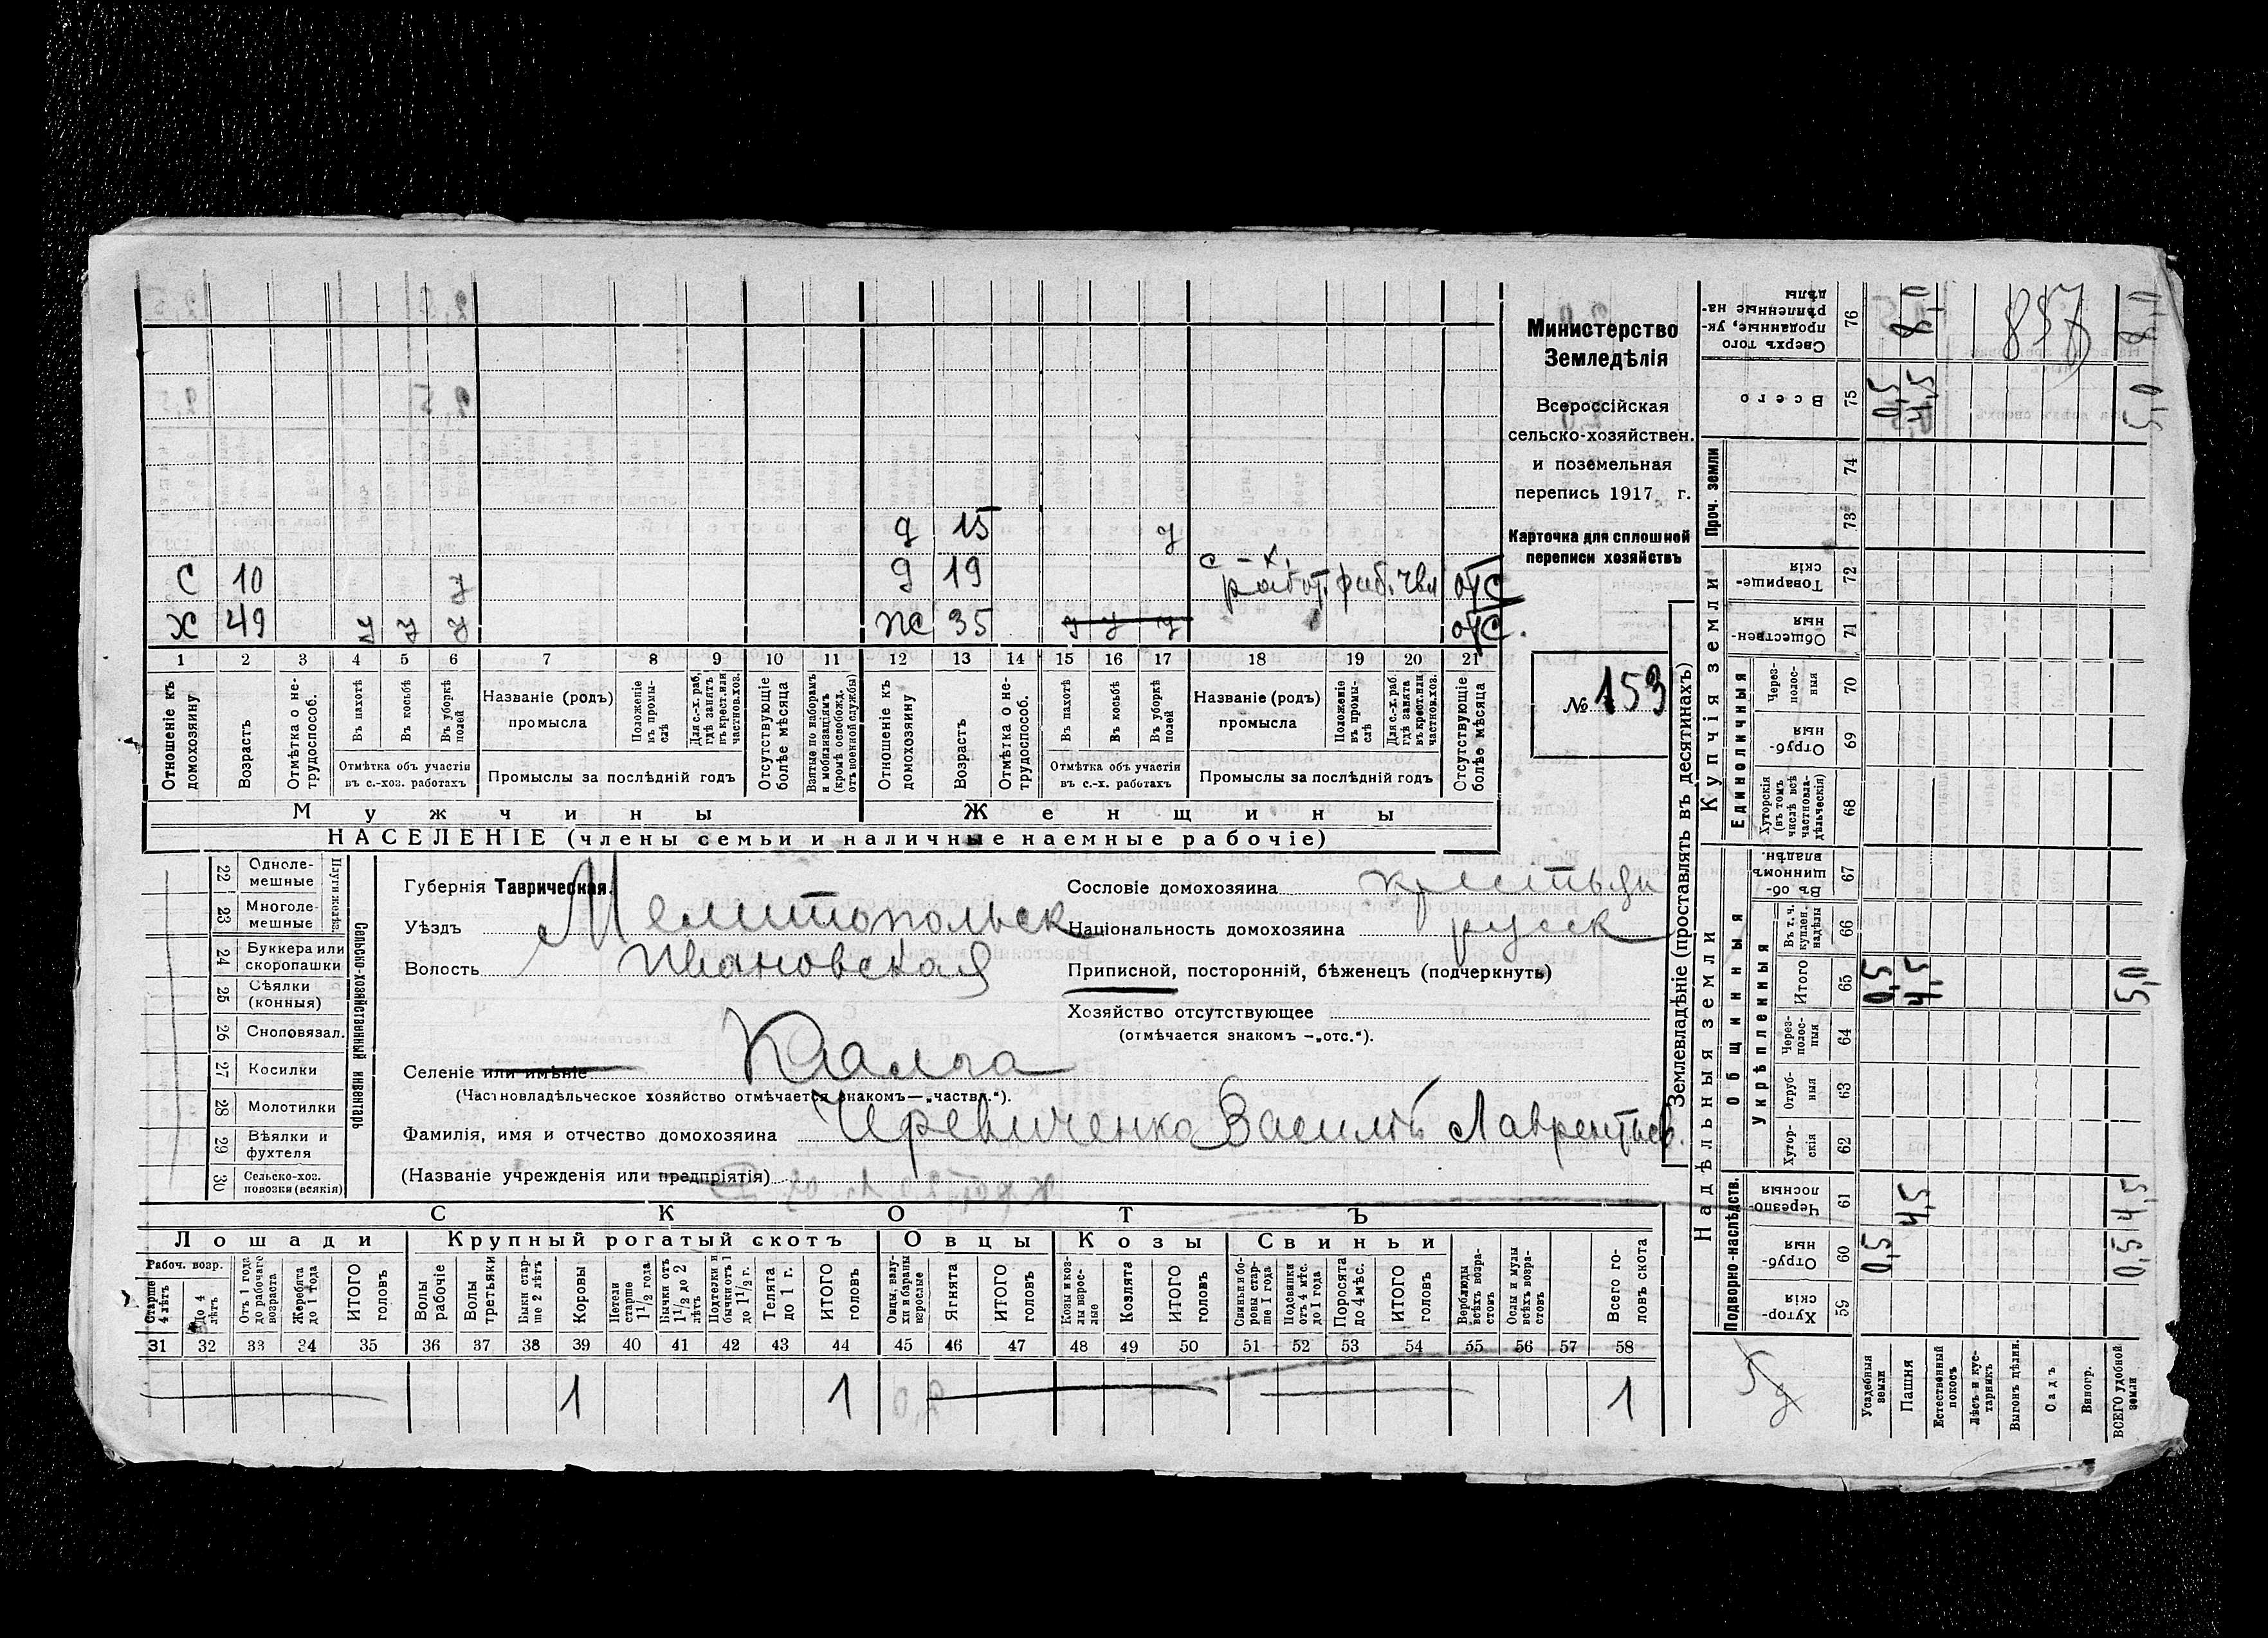 С 10 у
Х 49 у у у
д 15 у
д 19 с-х. работ. отс
ж 35 у у у отс.
1 2 3 4 5 6 7 8 9 10 11 12 13 14 15 16 17 18 19 20 21
Отношеніе къ домохозяину
Возрастъ
Отмѣтка о нетрудоспособ.
Въ пахотѣ
Въ косьбѣ
Въ уборкѣ полей
Отмѣтка объ участіи въ с.-хоз. работахъ
Названіе (родъ) промысла
Положеніе въ промыслѣ
Для с.-х. раб. гдѣ занятъ въ крест. или частнов. хоз.
Промыслы за послѣдній годъ
Отсутствующіе болѣе мѣсяца
Взятые по наборамъ и мобилизаціямъ (кромѣ освобожд. отъ военной службы)
Отношеніе къ домохозяину
Возрастъ
Отмѣтка о нетрудоспособ.
Въ пахотѣ
Въ косьбѣ
Въ уборкѣ полей
Отмѣтка объ участіи въ с.-х. работахъ
Названіе (родъ) промысла
Положеніе въ промыслѣ
Для с.-х. раб. гдѣ занята въ крест. или частнов. хоз.
Промыслы за послѣдній годъ
Отсутствующіе болѣе мѣсяца
Мужчины
Женщины
НАСЕЛЕНІЕ (члены семьи и наличные наемные рабочіе)
Министерство
Земледѣлія
Всероссійская
сельско-хозяйствен.
и поземельная
перепись 1917 г.
Карточка для сплошной
переписи хозяйствъ
№ 153
22 Однолемешные
23 Многолемешные
Плуги желѣз.
24 Буккера или скоропашки
25 Сѣялки (конныя)
26 Сноповязал.
27 Косилки
28 Молотилки
29 Вѣялки и фухтеля
30 Сельско-хоз. повозки (всякія)
Сельско-хозяйственный инвентарь
Губернія Таврическая.
Уѣздъ Мелитопольск
Волость Ивановская
Селеніе или имѣніе Калга
(Частновладѣльческое хозяйство отмѣчается знакомъ—„частвл.“).
Фамилія, имя и отчество домохозяина Черевиченко Василій Лаврентьев.
(Названіе учрежденія или предпріятія)
Сословіе домохозяина крестьян
Національность домохозяина русск
Приписной, посторонній, бѣженецъ (подчеркнуть)
Хозяйство отсутствующее
(отмѣчается знакомъ —„отс.“).
СКОТЪ
Лошади
Крупный рогатый скотъ
Овцы
Козы
Свиньи
Рабоч. возр.
Старше 4 лѣтъ
До 4 лѣтъ
Отъ 1 года до рабочаго возраста
Жеребята до 1 года
ИТОГО головъ
Волы рабочіе
Волы третьяки
Быки старше 2 лѣтъ
Коровы
Нетели старше 1 1/2 года
Бычки отъ 1 1/2 до 2 лѣтъ
Подтелки и бычки отъ 1 до 1 1/2 г.
Телята до 1 г.
ИТОГО головъ
Овцы, валухи и бараны взрослые
Ягнята
ИТОГО головъ
Козы и козлы взрослые
Козлята
ИТОГО головъ
Свиньи и боровы старше 1 года
Подсвинки отъ 4 мѣс. до 1 года
Поросята до 4 мѣс.
ИТОГО головъ
Верблюды всѣхъ возрастовъ
Ослы и мулы всѣхъ возрастовъ
Всего головъ скота
31 32 33 34 35 36 37 38 39 40 41 42 43 44 45 46 47 48 49 50 51 52 53 54 55 56 57 58
1 1 1
Землевладѣніе (проставлять въ десятинахъ)
Надѣльныя земли
Купчія земли
Проч. земли
Подворно-наслѣдств.
Общинныя
Укрѣпленныя
Единоличныя
Хуторскія 59
Отрубныя 60 0,5 0,5
Черезполосныя 61 4,5 4,5
Хуторскія 62
Отрубныя 63
Черезполосныя 64
Итого 65 0,5 4,5 5,0
Въ т. ч. куплен. надѣлы 66
Въ общинномъ владѣн. 67
Хуторскія (въ томъ числѣ всѣ частновладѣльческія) 68
Отрубныя 69
Черезполосныя 70
Общественныя 71
Товарищескія 72
73
74
Всего 75 0,5 4,5 5,0
Сверхъ того проданные, укрѣпленные надѣлы 76 8,0 8,0
Усадебныя земли
Пашня
Естественный покосъ
Лѣсъ и кустарникъ
Выгонъ цѣлин.
Садъ
Виногр.
ВСЕГО удобной земли